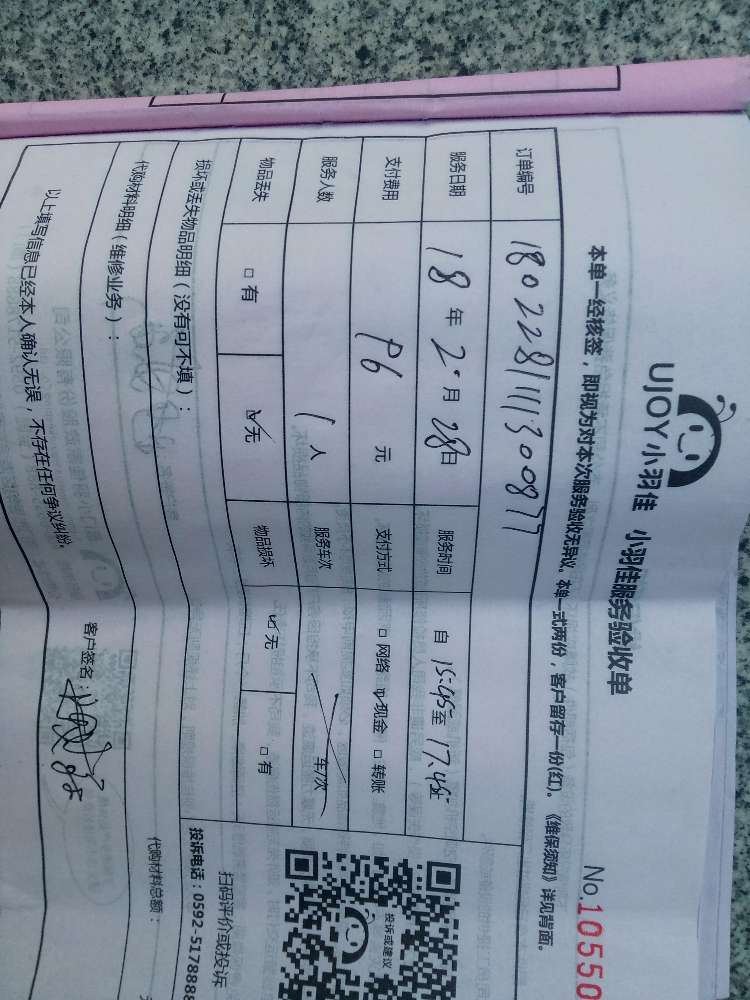 UJOY小羽佳 小羽佳服务验收单
No.10550
本单一经核签，即视为对本次服务验收无异议。本单一式两份，客户留存一份(红)。《维保须知》详见背面。
订单编号 180228111300877
服务日期 18年2月28日 服务时间 自15:45至17:45
支付费用 96元 支付方式 □网络 ☑现金 □转账
服务人数 1人 服务车次 车/次
物品丢失 □有 ☑无 物品损坏 ☑无 □有
损坏或丢失物品明细（没有可不填）：
代购材料明细（维修业务）：
代购材料总额：
以上填写信息已经本人确认无误，不存在任何争议纠纷。
客户签名：
投诉或建议
扫码评价或投诉
投诉电话：0592-517888